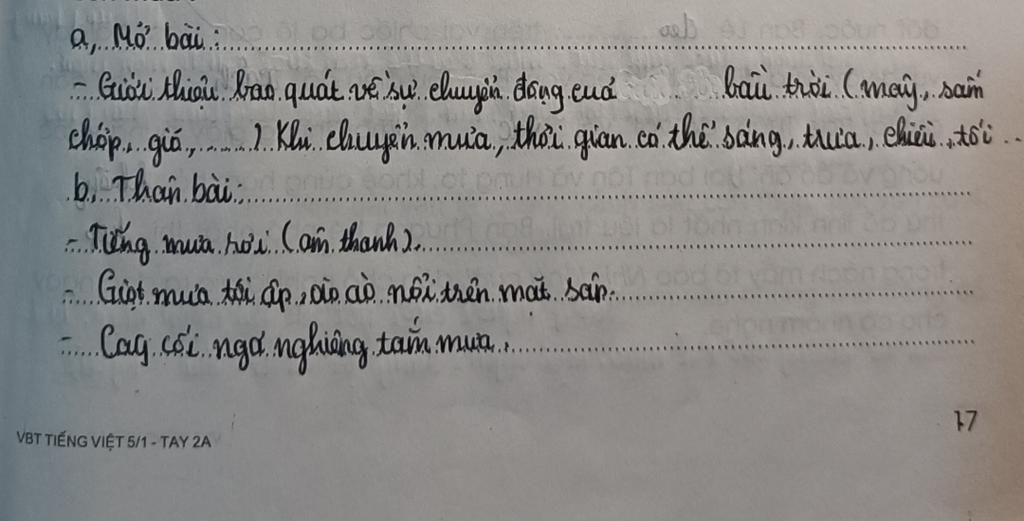 a, Mở bài:
- Giới thiệu bao quát về sự chuyển động cuả bầu trời (mây, sấm
chớp, gió, ......) Khi chuyển mưa, thời gian có thể sáng, trưa, chiều, tối ..
b, Thân bài:
- Tiếng mưa rơi (âm thanh).
- Giọt mưa tới ấp, ào ào nổi trên mặt sân.
- Cây cối ngả nghiêng tắm mưa.
17
VBT TIẾNG VIỆT 5/1 - TAY 2A